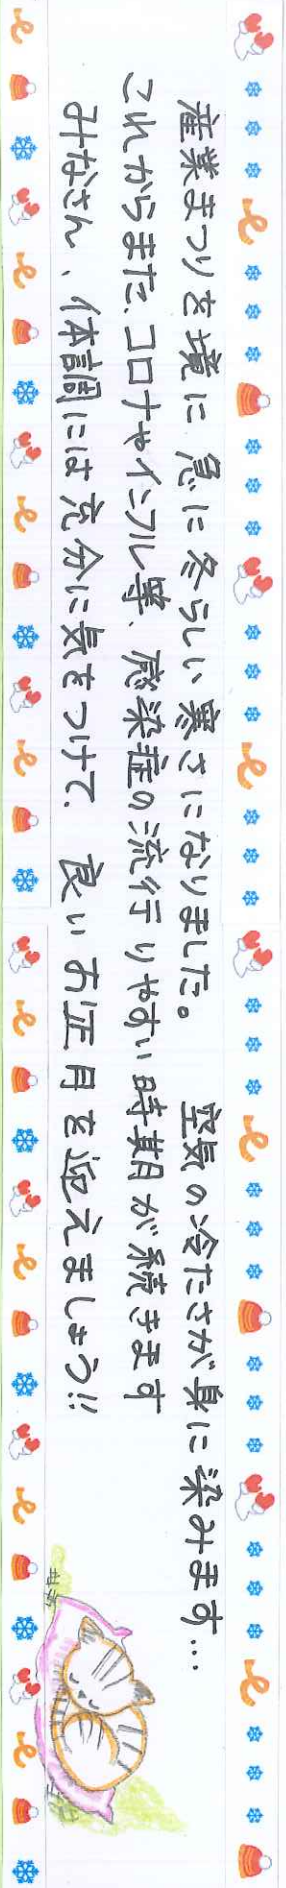 産業まつりを境に 急に冬らしい寒さになりました。 空気の冷たさが身に染みます…
これからまた、コロナやインフル等、感染症の流行りやすい時期が続きます
みなさん、体調には充分に気をつけて、良いお正月を迎えましょう!!